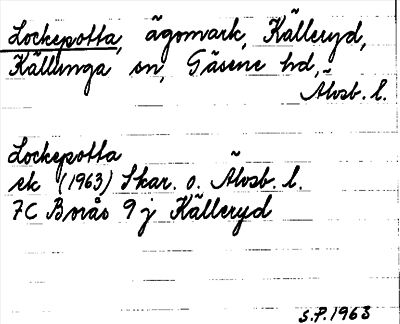 Lockepotta, ägomark, Källeryd,
Källunga sn, Gäsene hd,
Älvsb. l.
Lockepotta
ek (1963) Skar. o. Älvsb. l.
7C Borås 9 j Källeryd
S.P. 1963